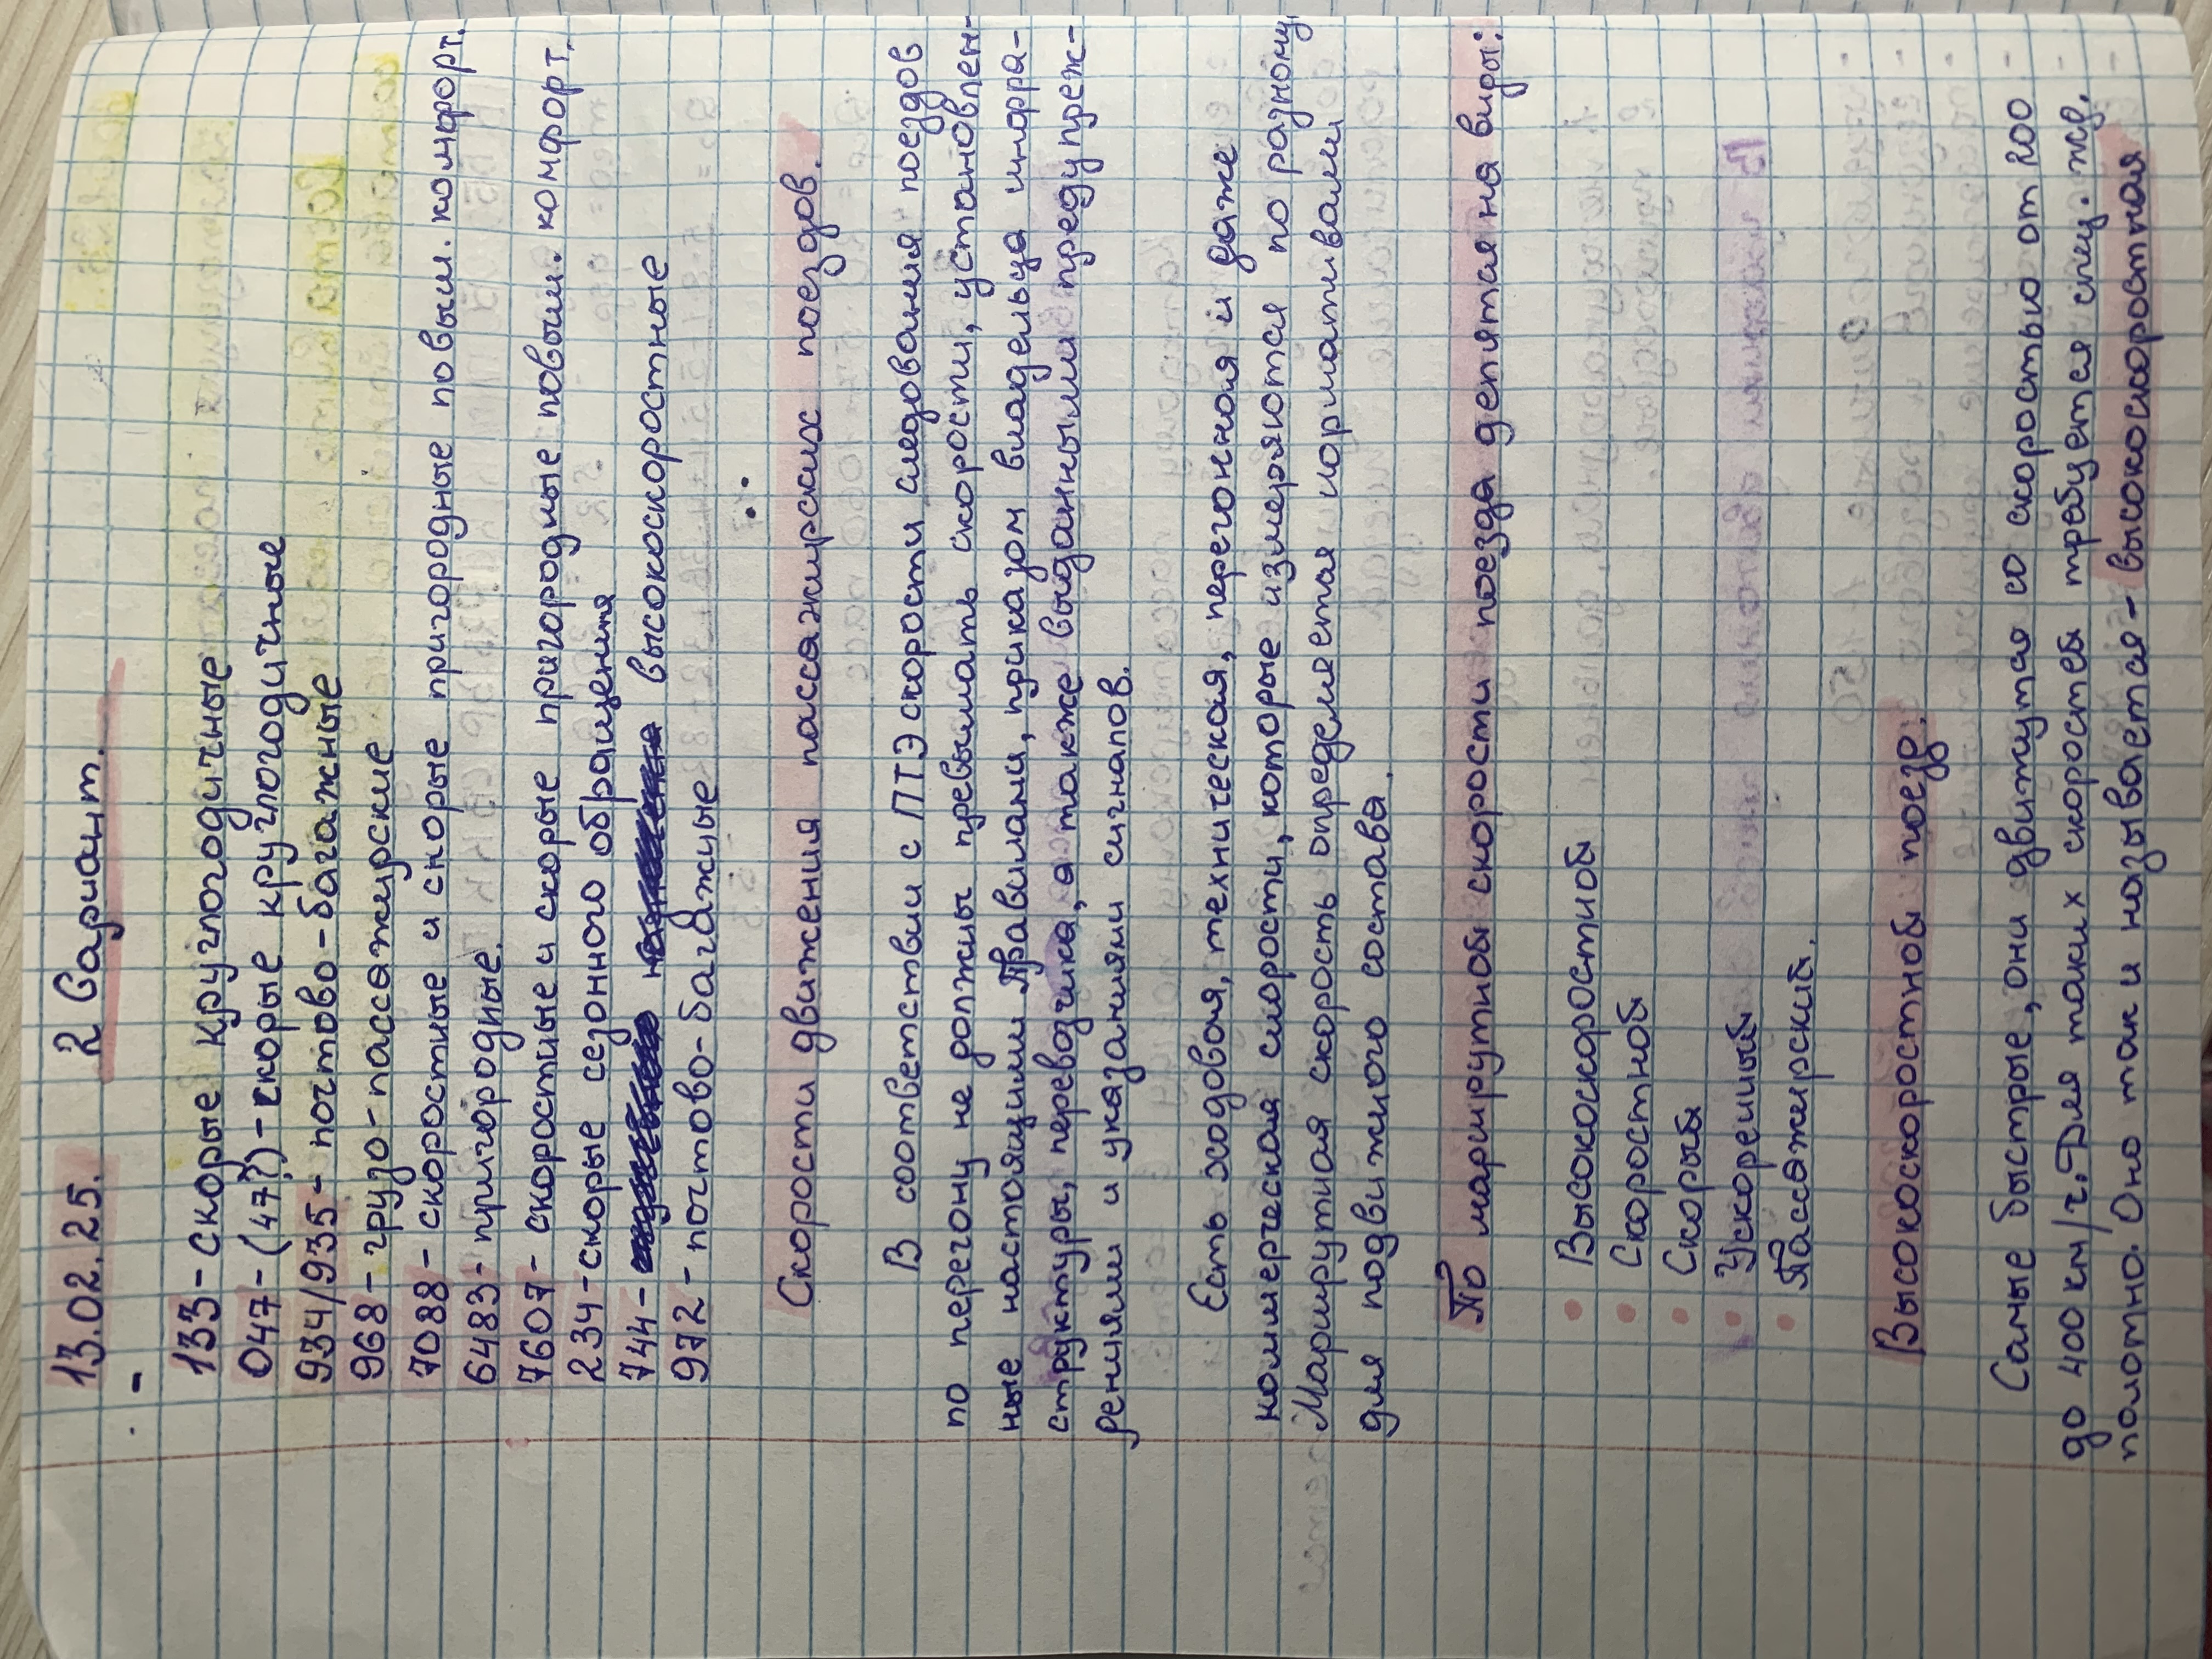 13.02.25. 2 Вариант.
133 - скорые круглогодичные
047 - (47?) - скорые круглогодичные
934/935 - почтово-багажные
968 - грузо-пассажирские
7088 - скоростные и скорые пригородные повыш. комфорт.
6483 - пригородные.
7607 - скоростные и скорые пригородные повыш. комфорт.
234 - скорые сезонного обращения
744 - высокоскоростные
972 - почтово-багажные
Скорости движения пассажирских поездов.
В соответствии с ПТЭ скорости следования поездов
по перегону не должны превышать скорости, установлен-
ные настоящими Правилами, приказом владельца инфра-
структуры, перевозчика, а также выданными предупреж-
дениями и указаниями сигналов.
Есть ходовая, техническая, перегонная и даже
коммерческая скорости, которые измеряются по разному
Маршрутная скорость определяется нормативами
для подвижного состава.
По маршрутной скорости поезда делятся на виды:
• Высокоскоростной
• Скоростной
• Скорый
• Ускоренный
• Пассажирский.
Высокоскоростной поезд.
Самые быстрые, они движутся со скоростью от 200
до 400 км/ч. Для таких скоростей требуется спец. жд.
полотно. Оно так и называется - высокоскоростная